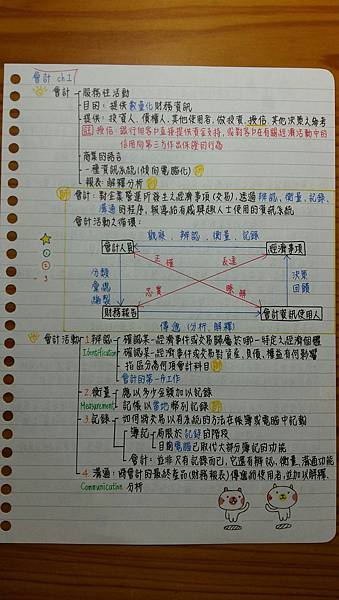 會計 ch1
會計 服務性活動
目的: 提供數量化財務資訊
提供: 投資人、債權人、其他使用者, 做投資、授信、其他決策之參考
註 授信: 銀行給客戶直接提供資金支持, 或對客戶在有關經濟活動中的
信用向第三方作出保證的行為
商業的語言
一種資訊系統(傾向電腦化)
報表: 解釋分析
會計: 對企業營運所發生之經濟事項(交易), 透過辨認、衡量、記錄、
溝通的程序, 報導給有關興趣人士使用的資訊系統
會計活動之循環:
觀察、辨認、衡量、記錄
會計人員 經濟事項
正確 表達
1
2
3
分類 彙總 編製
決策 回饋
忠實 瞭解
財務報告 會計資訊使用人
傳達(分析、解釋)
會計活動 1.辨認 確認某一經濟事件或交易歸屬於哪一特定之經濟個體
Identification 確認某一經濟事件或交易對資產、負債、權益有何影響
指區分為何項會計科目
會計的第一步工作
2.衡量 應以多少金額加以記錄
Measurement 記帳以當地幣別記錄
3.記錄 如何將交易以有系統的方法在帳簿或電腦中記載
簿記 局限於記錄的階段
目前電腦已取代大部分簿記的功能
會計: 並非只有記錄而已, 它還有辨認、衡量、溝通功能
4.溝通: 將會計的最終產品(財務報表)傳達給使用者, 並加以解釋、
Communication 分析